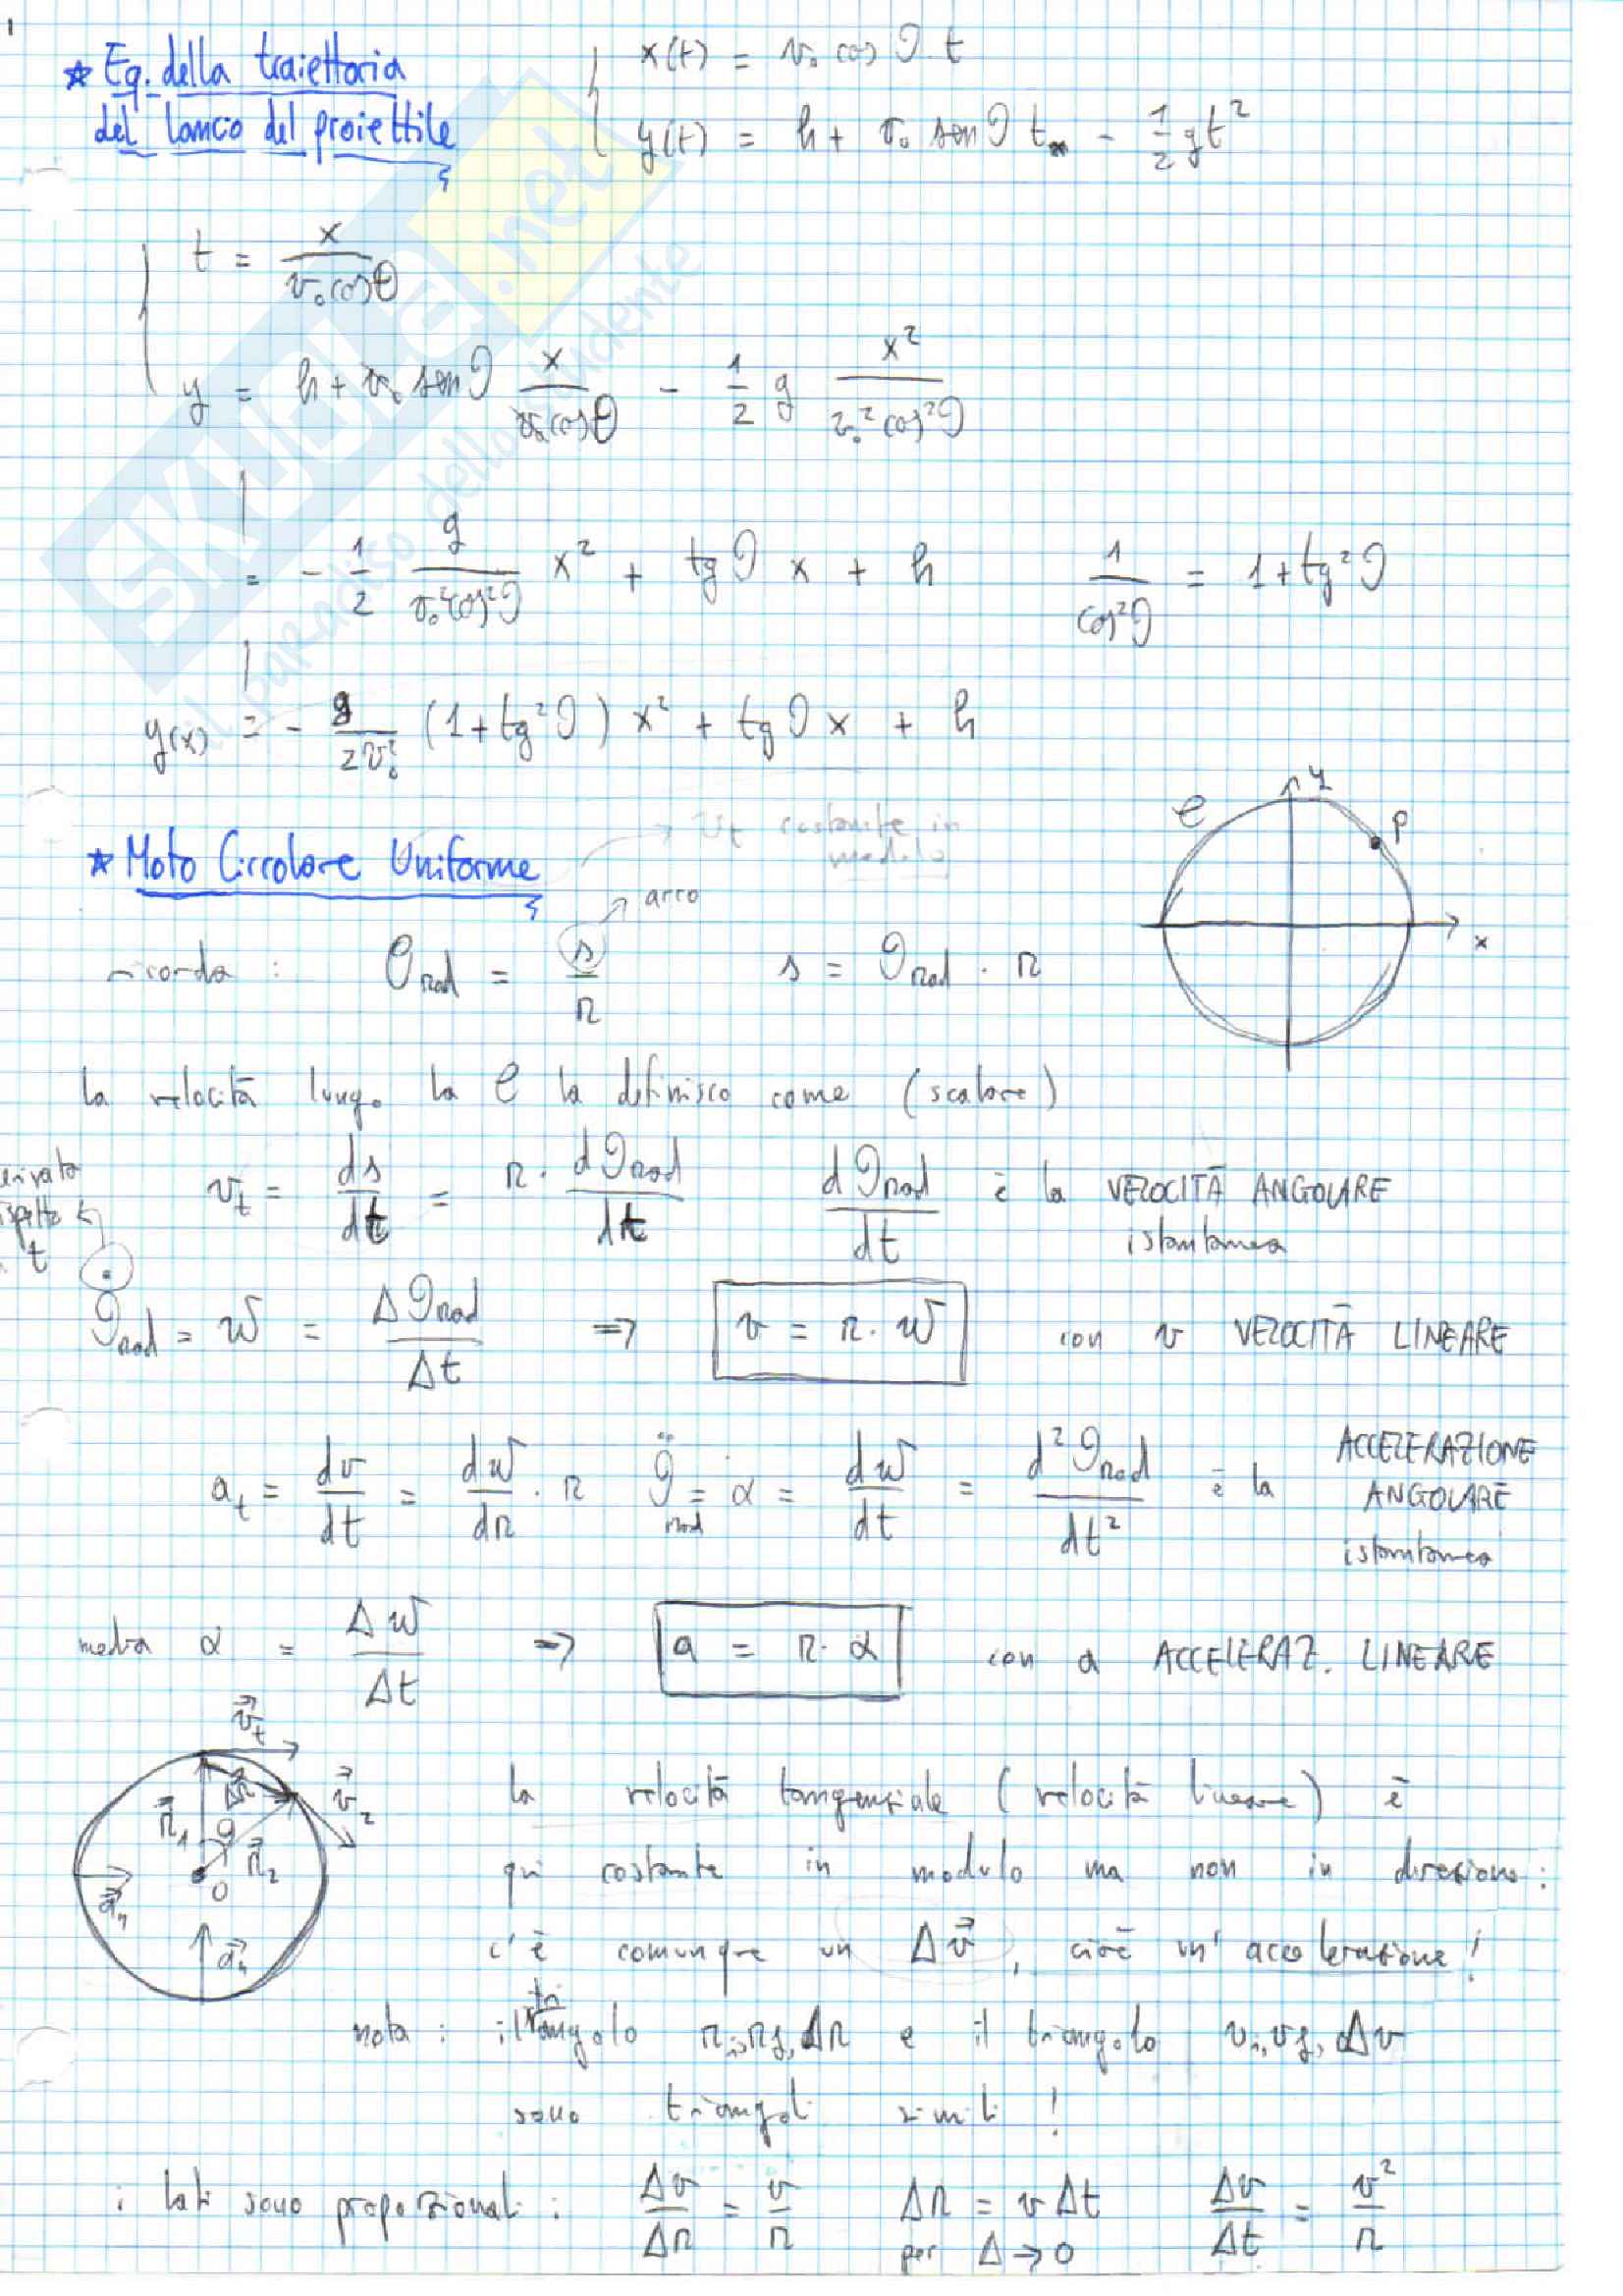 1
* Eq. della traiettoria
del lancio del proiettile
x(t) = v₀ cos ϑ · t
y(t) = h + v₀ sen ϑ t - 1/2 gt²
t = x / (v₀ cos θ)
y = h + v₀ sen ϑ x / (v₀ cos θ) - 1/2 g x² / (v₀² cos² ϑ)
= - 1/2 g / (v₀² cos² ϑ) x² + tg ϑ x + h    1 / cos² ϑ = 1 + tg² ϑ
y(x) = - g / 2v₀² (1 + tg² ϑ) x² + tg ϑ x + h
SKUOLA.net
il paradiso dello studente
* Moto Circolare Uniforme
→ v_t costante in
modulo
→ arco
y
C
P
x
ricorda : θ_rad = s / r    s = ϑ_rad · r
la velocità lungo la C la definisco come (scalare)
derivata
rispetto
t
v_t = ds/dt = r · dϑ_rad/dt    dϑ_rad/dt è la VELOCITÀ ANGOLARE
istantanea
ϑ̇_rad = w = Δϑ_rad / Δt ⇒ v = r · w con v VELOCITÀ LINEARE
a_t = dv/dt = dw/dr · r    ϑ̈_rad = α = dw/dt = d²ϑ_rad/dt² è la ACCELERAZIONE
ANGOLARE
istantanea
media α = Δw/Δt ⇒ a = r · α con a ACCELERAZ. LINEARE
v⃗_t
Δr⃗
v⃗₂
r⃗₁
ϑ
r⃗₂
O
a⃗ₙ
a⃗ₙ
la velocità tangenziale (velocità lineare) è
qui costante in modulo ma non in direzione:
c'è comunque un Δv⃗, cioè un'accelerazione!
nota : il triangolo r_i, r_f, Δr e il triangolo v_i, v_f, Δv
sono triangoli simili !
i lati sono proporzionali : Δv/Δr = v/r    Δr = v Δt    Δv/Δt = v²/r
per Δ → 0